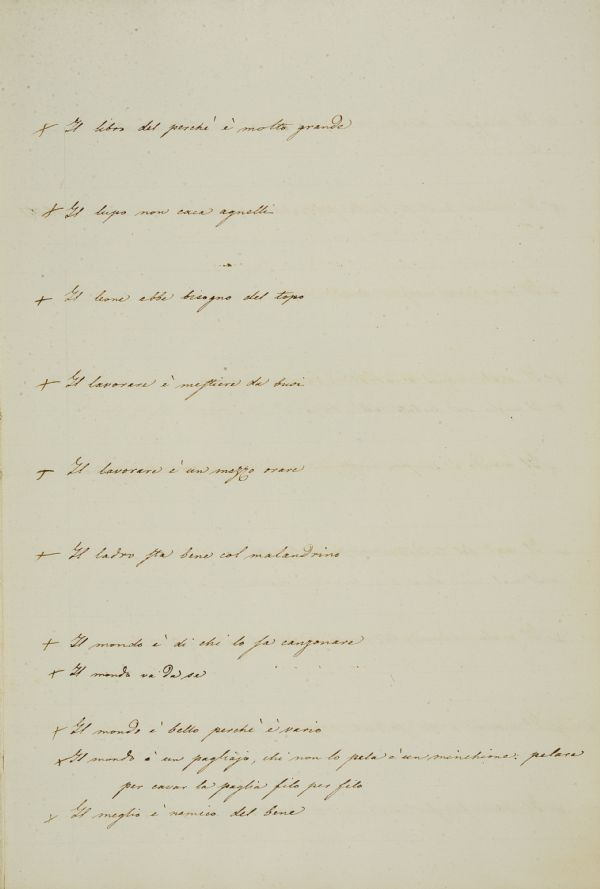 + Il libro del perchè è molto grande
+ Il lupo non caca agnelli
+ Il leone ebbe bisogno del topo
+ Il lavorare è mestiere da buoi
+ Il lavorare è un mezzo orare
+ Il ladro sta bene col malandrino
+ Il mondo è di chi lo sa canzonare
+ Il mondo va da se
+ Il mondo è bello perchè è vario
+ Il mondo è un pagliajo, chi non lo pela è un minchione: pelare
per cavar la paglia filo per filo
+ Il meglio è nemico del bene